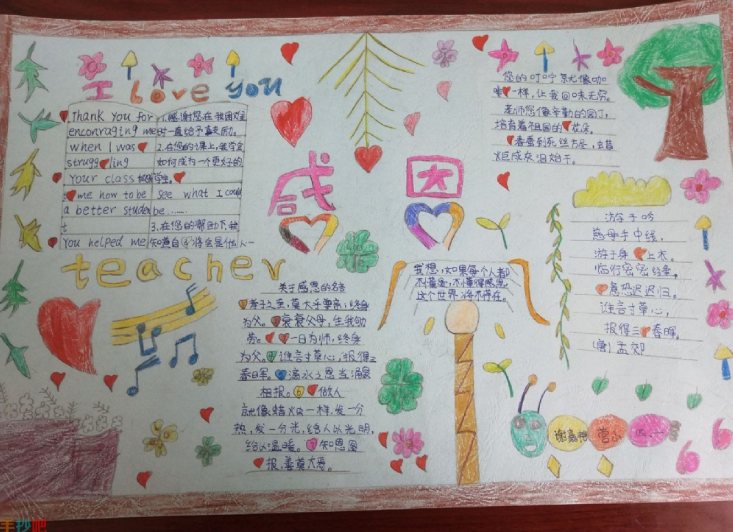 I love you
Thank You for
encouraging me
when I was
struggling
Your class
me how to be
a better student
You helped me
1.感谢您在我困难
时一直给予嘉夫所.
2.在您的课上,我学会
如何成为一个更好的
学生.
see what I could
be......
3.在您的帮助下我
知道自己将会是什么一
teacher
感 因
您的叮咛就像咖
啡一样,让我回味无穷。
老师您像辛勤的园丁,
培育着祖国的花朵。
春蚕到死丝方尽,蜡
炬成灰泪始干。
游子吟
慈母手中线,
游子身上衣。
临行密密缝,
意恐迟迟归。
谁言寸草心,
报得三春晖。
唐]孟郊
我想,如果每个人都
不懂爱,不懂得感恩,
这个世界将不存在。
关于感恩的名言
孝子之至,莫大乎尊亲;终身
为父。哀哀父母,生我劬
劳。一日为师,终身
为父。谁言寸草心,报得三
春日军。滴水之恩当涌泉
相报。做人
就像蜡火一样,发一分
热,发一分光,给人以光明,
给以温暖。知恩图
报,善莫大焉。
手抄吧